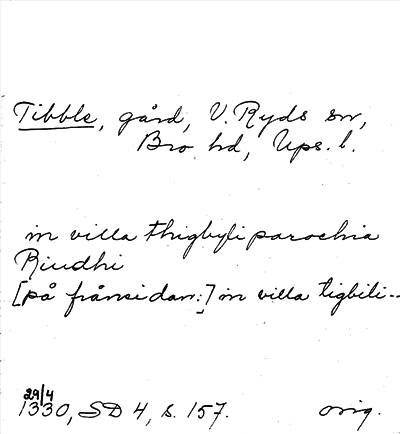 Tibble, gård, V. Ryds sn,
Bro hd, Ups. l.
in villa thigbyli parochia
Riudhi
[på frånsidan:] in villa tigbili--
29/4
1330, SD 4, s. 157. orig.